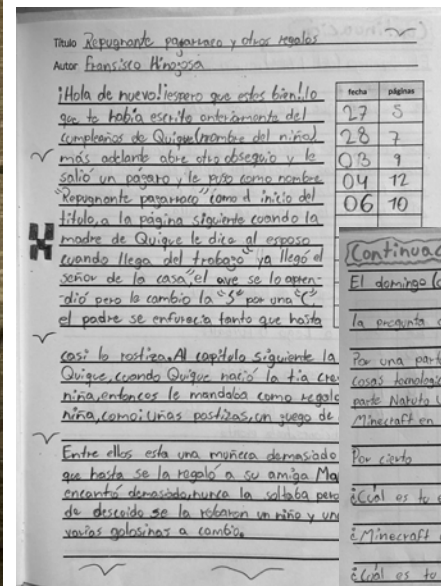 Título Repugnante pajarraco y otros regalos
Autor Fransisco Hinojosa
¡Hola de nuevo! ¡espero que estes bien!, lo
que te había escrito anteriormente del
cumpleaños de Quique (nombre del niño)
más adelante abre otro obsequio y le
salió un pájaro y le puso como nombre
"Repugnante pajarraco" como el inicio del
titulo, a la página siguiente cuando la
madre de Quique le dice al esposo
cuando llega del trabajo "ya llegó el
señor de la casa", el ave se lo apren-
dió pero la cambio la "S" por una "C",
el padre se enfurecía tanto que hasta
casi lo rostiza. Al capítulo siguiente la
Quique, cuando Quique nació la tia cre
niña, entonces le mandaba como regalo
niña, como: uñas postizas, un juego de
Entre ellos esta una muñeca demasiado
que hasta se la regaló a su amiga Ma
encantó demasiado, nunca la soltaba pero
de descuido se la robaron un niño y un
varias golosinas a cambio.
fecha páginas
27 5
28 7
03 9
04 12
06 10
Continuac
El domingo (
la pregunta
Por una part
cosas
parte Naruto
Minecraft en
Por cierto
¿Cúal es tu
¿Minecraft
¿Cúal es tu